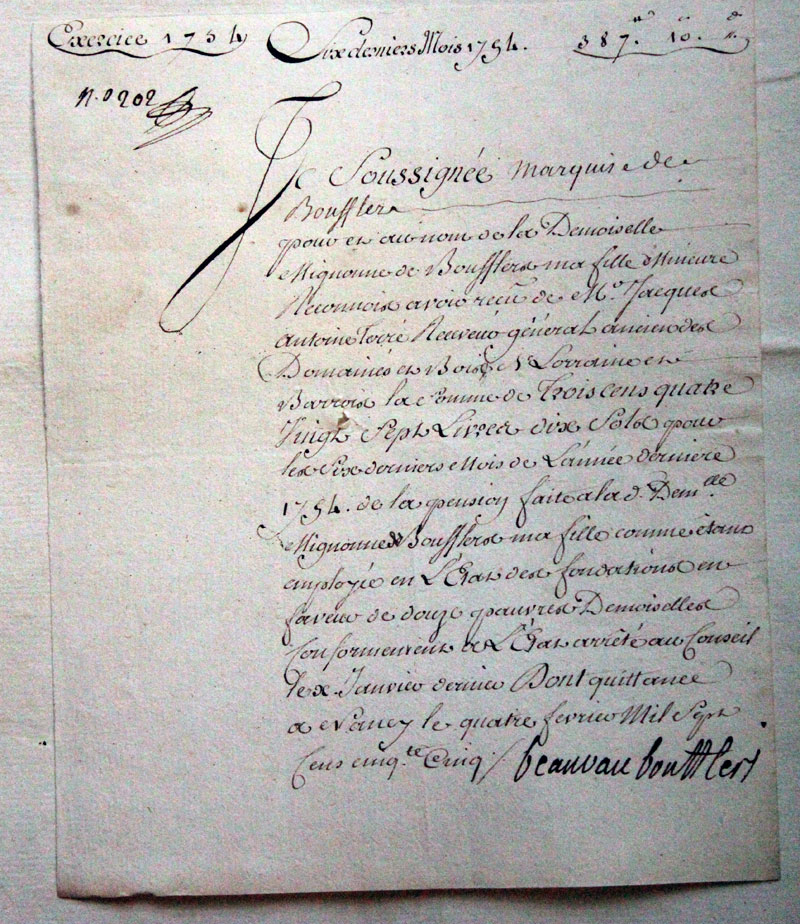 Exercice 1754 Six derniers Mois 1754. 387.tt 10.s d.
N.o 202
Je Soussignée Marquise de
Boufflers
pour et au nom de la Demoiselle
Mignonne de Boufflers ma fille Mineure
Reconnois avoir reçu de M.r Jacques
Antoine Ferré Receveur général ancien des
Domaines et Bois de Lorraine et
Barrois la Somme de Trois cens quatre
Vingt Sept Livres dix Sols pour
les Six derniers Mois de L'année dernière
1754. de la pension faite a la d. Dem.lle
Mignonne de Boufflers ma fille comme étant
employée en L'Etat des fondations en
faveur de douze pauvres Demoiselles
Conformement a L'Etat arrêté au Conseil
le x. Janvier dernier Dont quittance
a Nancy le quatre fevrier Mil Sept
Cens cinq.te Cinq / beauvau boufflers